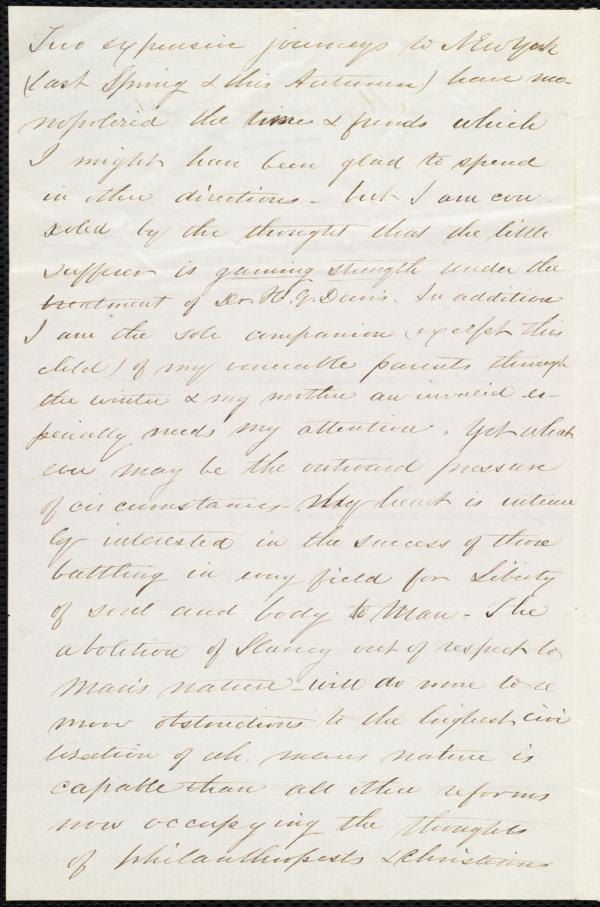 Two expensive journeys to New York
(last Spring & this Autumn) have mo-
nopolized the time & funds which
I might have been glad to spend
in other directions - but I am con
soled by the thought that the little
sufferer is gaining strength under the
treatment of Dr. H. G. Davis. In addition
I am the sole companion (except this
child) of my venerable parents through
the winter & my mother an invalid es-
pecially needs my attention. Yet what
ever may be the outward pressure
of circumstances - My heart is intense
ly interested in the success of those
battling in every field for Liberty
of soul and body to Man - The
abolition of Slavery out of respect to
Man's nature - will do more to re
move obstructions to the highest civi
lization of wh. mans nature is
capable than all other reforms
now occupying the thoughts
of philanthropists & Christians